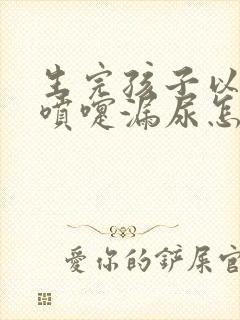 生完孩子以
喷嚏漏尿怎
爱你的铲屎官